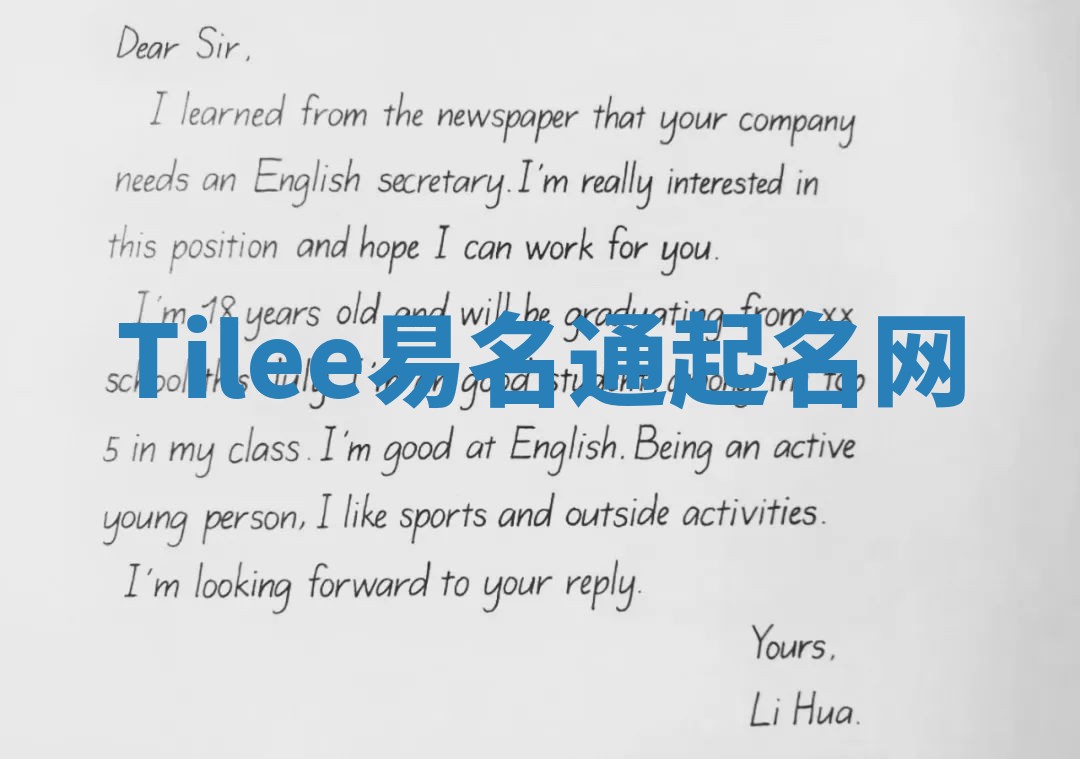 Dear Sir,
I learned from the newspaper that your company
needs an English secretary. I'm really interested in
this position and hope I can work for you.
I'm 18 years old and will be graduating from xx
Tilee易名通起名网
school this July. I'm a good student, among the top
5 in my class. I'm good at English. Being an active
young person, I like sports and outside activities.
I'm looking forward to your reply.
Yours,
Li Hua.